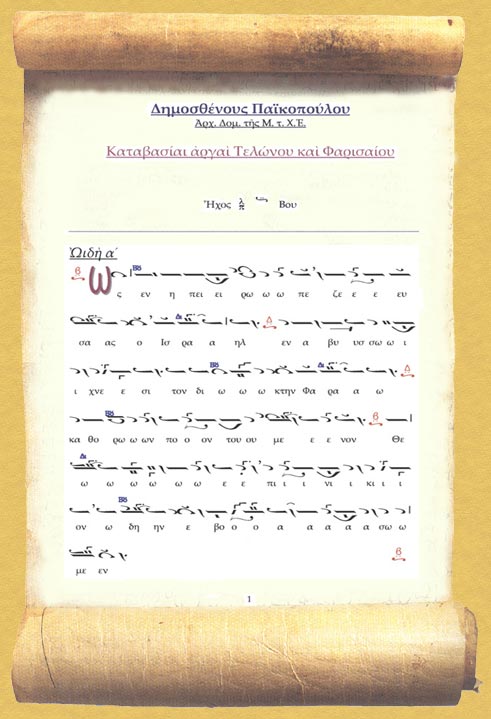 Δημοσθένους Παϊκοπούλου
Ἀρχ. Δομ. τῆς Μ. τ. Χ.Ἐ.
Καταβασίαι ἀργαὶ Τελώνου καὶ Φαρισαίου
Ἦχος λ π Βου
Ὠιδὴ α΄
Ω ς εν η πει ει ρω ω ω πε ζε ε ε ευ
σα ας ο Ισ ρα α ηλ εν α βυ υσ σω ω ι
ι χνε ε σι τον δι ω ω ω κτην Φα ρα α ω
κα θο ρω ω ων πο ο ον του ου με ε ε νον Θε
ω ω ω ω ω ω ε ε πι ι ι νι ι κι ι ι
ον ω δη ην ε βο ο ο α α α α α σω ω
με εν
1